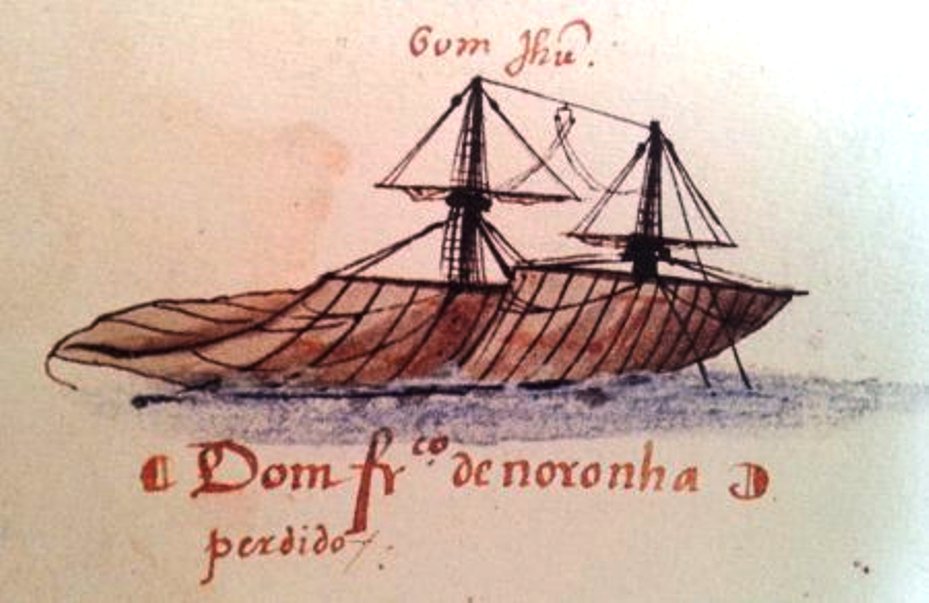 Bom Jhũ.
Dom frco de noronha
perdido